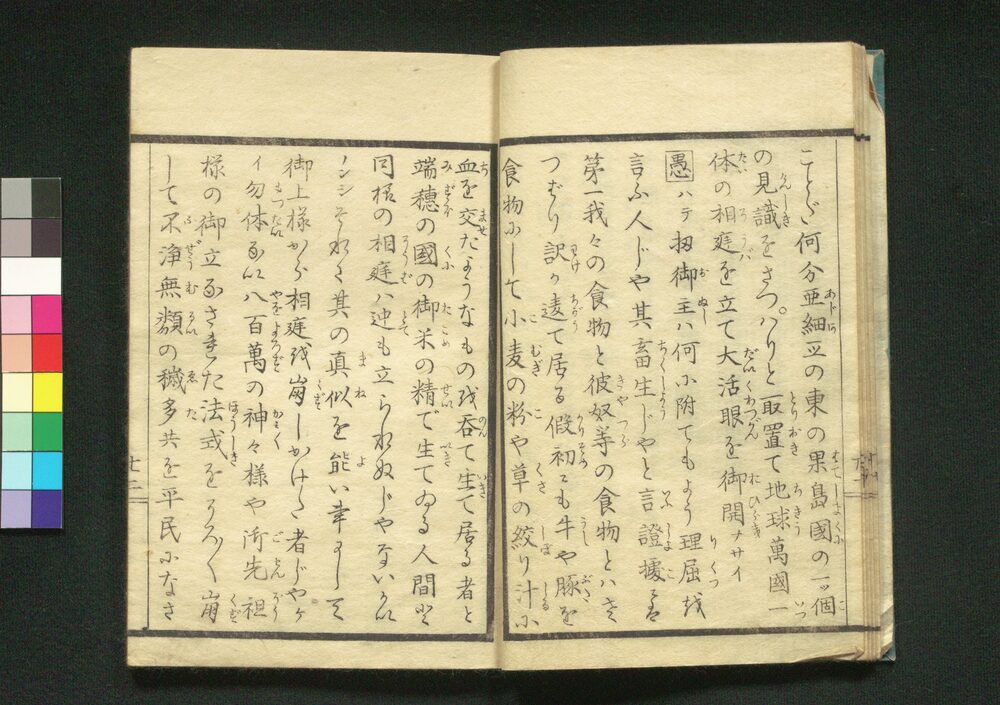 ことだ何分亜細亜の東の果島國の一ツ個
の見識をさつぱりと取置て地球萬國一
体の相庭を立て大活眼を御開ナサイ
愚ハテ扨御主ハ何に附てもよう理屈を
言ふ人じや其畜生じやと言證據は
第一我々の食物と彼奴等の食物とハさ
つぱり訳が違て居る假初にも牛や豚を
食物にして小麦の粉や草の絞り汁に
血を交たようなものを呑て生て居る者と
端穂の國の御米の精で生てゐる人間と
同格の相庭ハ迚も立られぬじやないかい
ノンシそれに其の真似を能い幸にして
御上様から相庭を崩しかけた者じやが
イ勿体ない八百萬の神々様や御先祖
様の御立なされた法式をそろ〳〵崩
して不浄無類の穢多共を平民になさ
十三